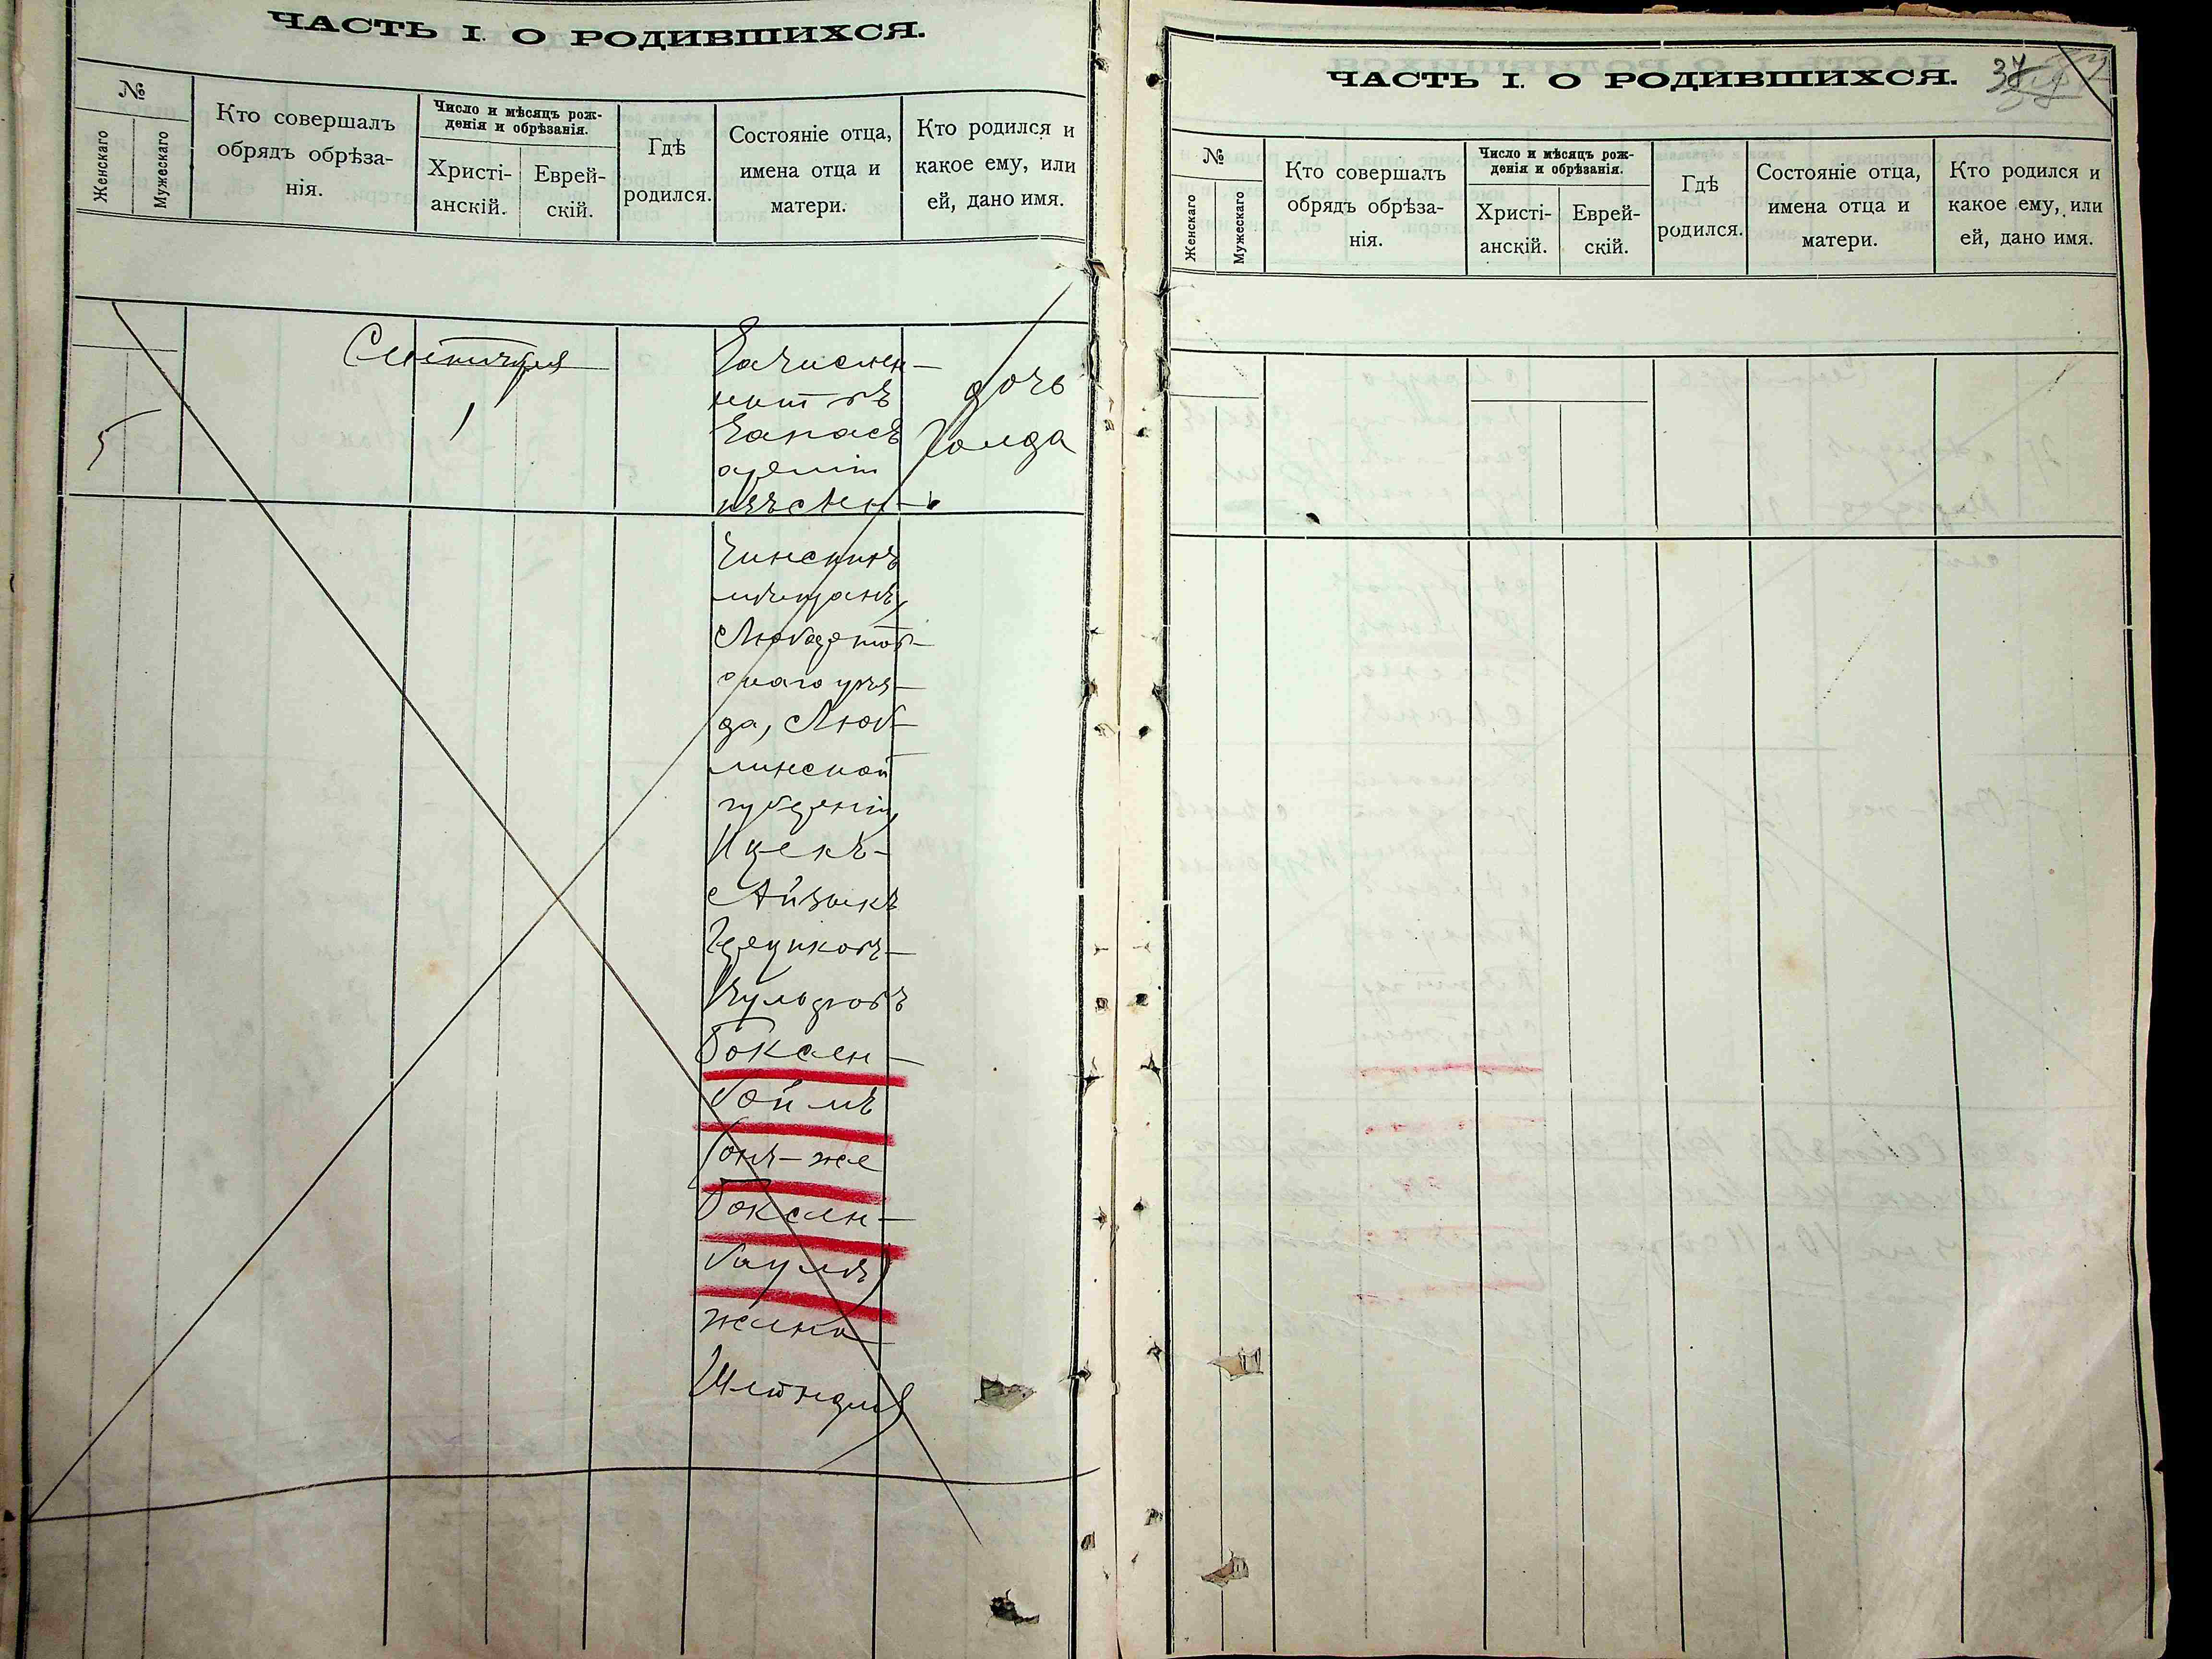 ЧАСТЬ I. О РОДИВШИХСЯ.
№
Женскаго
Мужескаго
Кто совершалъ
обрядъ обрѣза-
нія.
Число и мѣсяцъ рож-
денія и обрѣзанія.
Христі-
анскій.
Еврей-
скій.
Гдѣ
родился.
Состояніе отца,
имена отца и
матери.
Кто родился и
какое ему, или
ей, дано имя.
Сентября
5
1
Зачислен-
ный въ
Запасъ
арміи
дочь
Голда
чинскихъ
мѣщанъ,
Любартов-
скаго уѣз-
да, Люб-
линской
губерніи,
Ицекъ-
Айзыкъ
Герцикокъ-
Боксен-
боймъ
онъ-же
Боксен-
баумъ,
жена
ЧАСТЬ I. О РОДИВШИХСЯ.
37
№
Женскаго
Мужескаго
Кто совершалъ
обрядъ обрѣза-
нія.
Число и мѣсяцъ рож-
денія и обрѣзанія.
Христі-
анскій.
Еврей-
скій.
Гдѣ
родился.
Состояніе отца,
имена отца и
матери.
Кто родился и
какое ему, или
ей, дано имя.